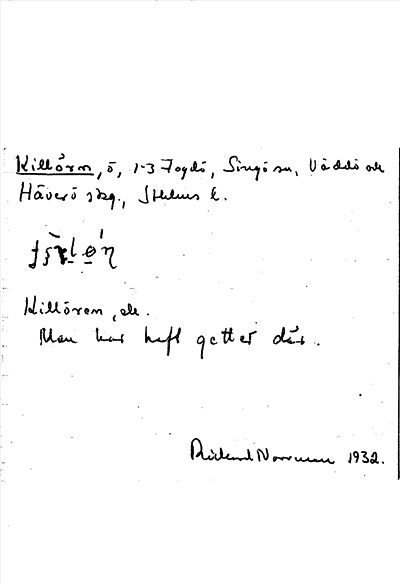 Killören, ö, 1-3 Fogdö, Singö sn, Väddö och
Häverö skg., Sthlms l.
Killören, ek.
Man har haft getter där.
Rickard Norrman 1932.